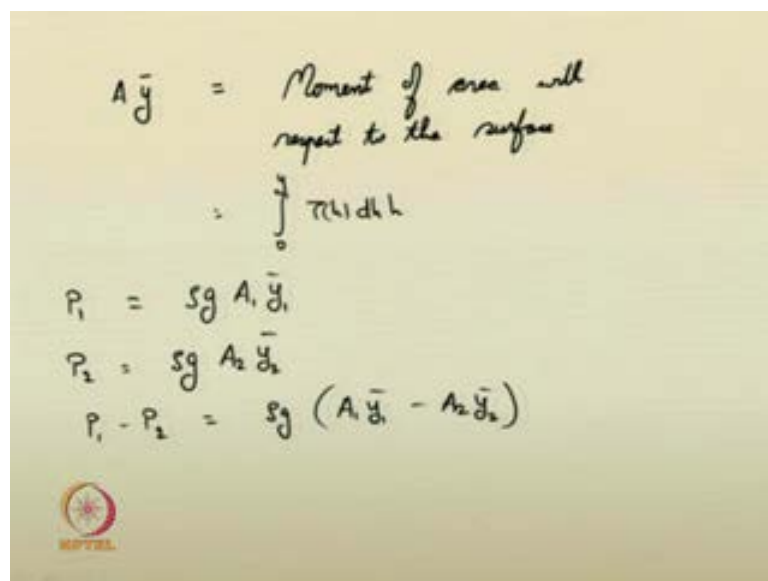 A ȳ = Moment of area with
respect to the surface
= ∫₀ʸ T(h) dh h
P₁ = ρg A₁ ȳ₁
P₂ = ρg A₂ ȳ₂
P₁ - P₂ = ρg (A₁ ȳ₁ - A₂ ȳ₂)
NPTEL